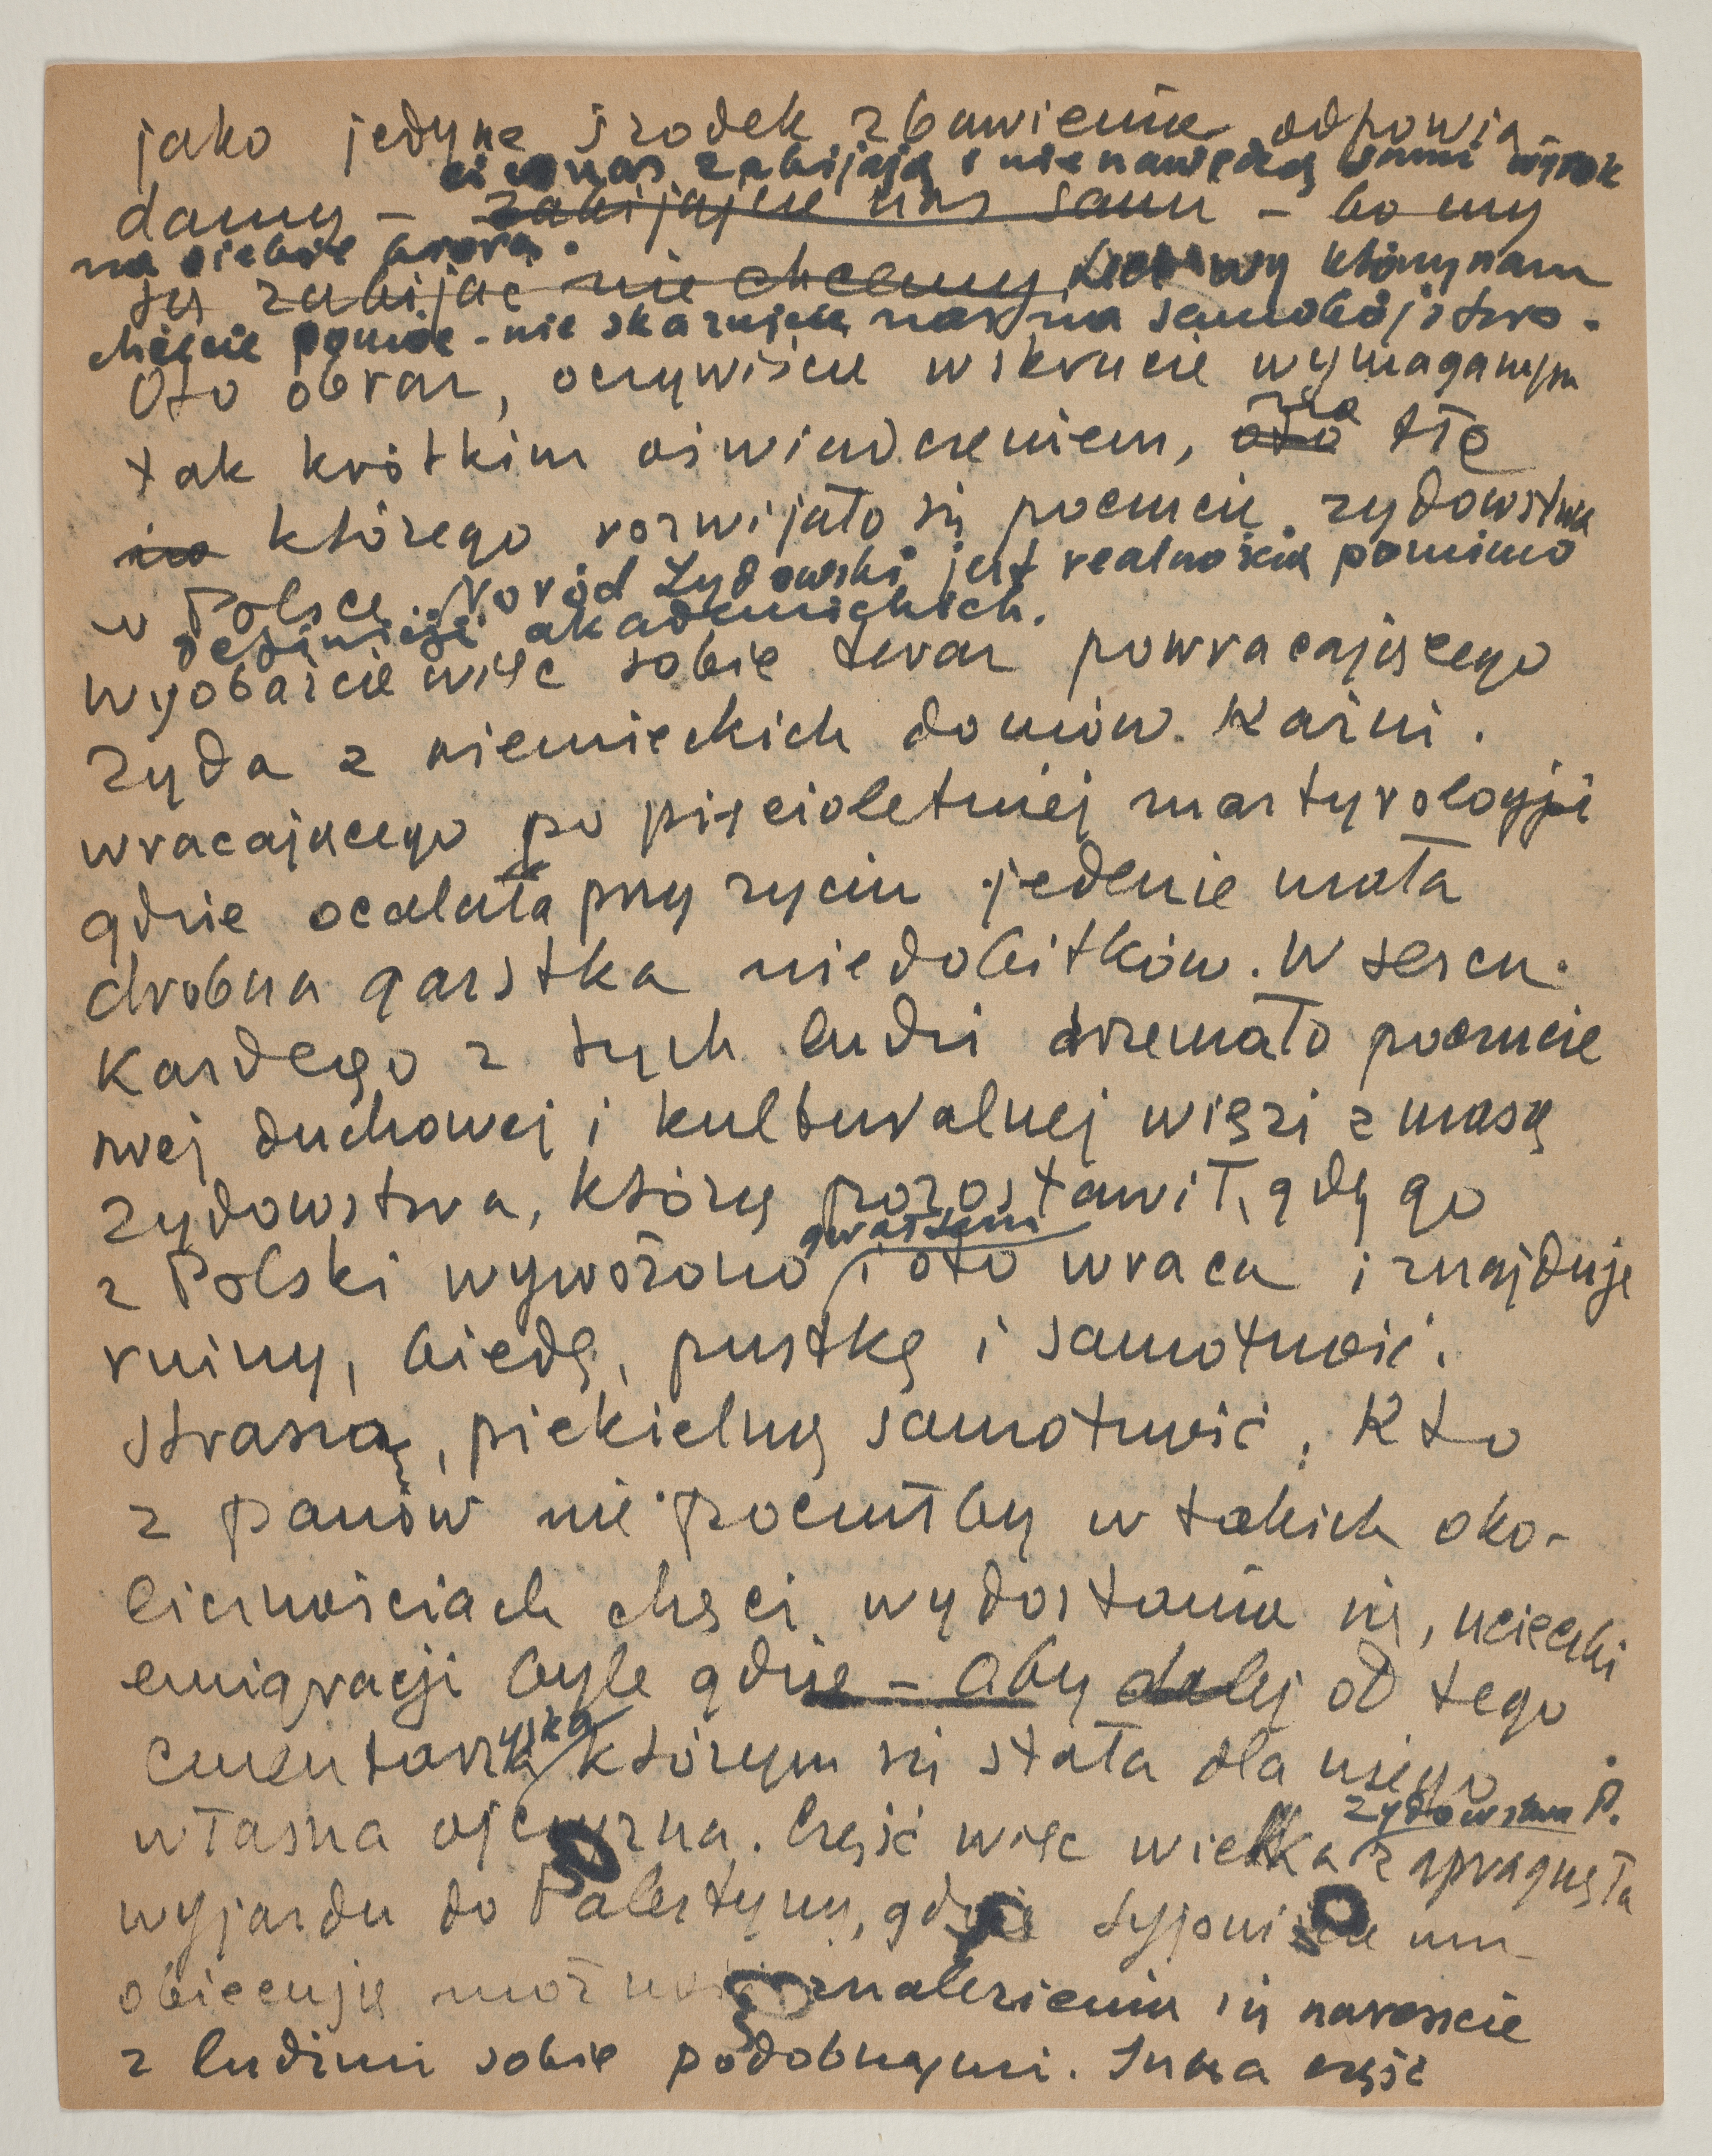 jako jedyne środek zbawienia odpowia-
ci co nas zabijają i nienawidzą sami wyrok
damy – zabijajcie nas sami – bo my
na siebie biorą.
się zabijać nie chcemy Lecz wy którzy nam
chcecie pomóc – nie skazujcie nas na samobójstwo.
Oto obraz, oczywiście w skrucie wymaganym
tak krótkim oświadczeniem, oto tło
na
na którego rozwijało się poczucie żydowstwa
w Polsce. Naród Żydowski jest realnością pomimo
definicji akademickich.
wyobaźcie więc sobie twar powracającego
żyda z niemieckich domów. Kaźni.
wracającego po pięcioletniej martyrologji
gdzie ocalała przy życiu jedenie mała
drobna garstka niedobitków. W sercu.
Kasdego z tych ludzi drzemało poczucie
swej duchowej i kulturalnej więzi z masą
żydowstwa, którą pozostawił, gdy go
gwałtem
z Polski wywożono i oto wraca i znajduje
ruiny, biedę, pustkę i samotność.
straszną, piekielną samotność. Kto
z panów nie poczułby w takich oko-
licznościach chęci wydostania się, ucieczki
emigracji byle gdzie – aby dalej od tego
yska
cmentarza którym się stała dla niego
żydowstwa P.
własna ojczyzna. Część więc wielka zapragnęła
wyjazdu do Palestyny, gdzie syjoniści mu
obiecują możność znalezienia się nareszcie
z ludźmi sobie podobnymi. Inna część